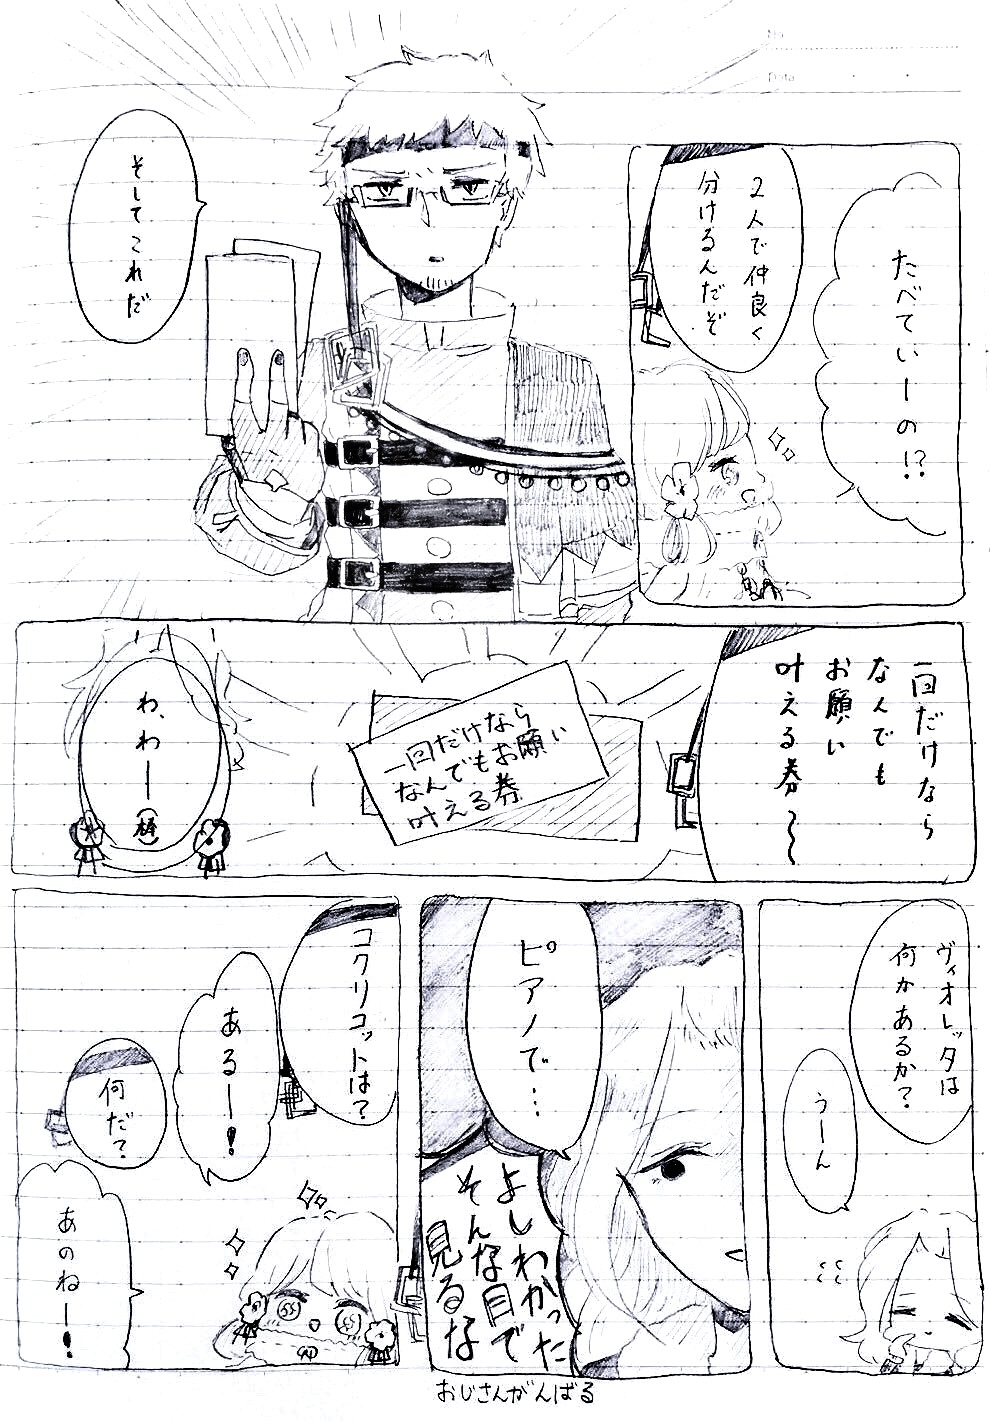 No.
Date
たべていーの!?
2人で仲良く
分けるんだぞ
そしてこれだ
一回だけなら
なんでも
お願い
叶える券〜
一回だけなら
なんでもお願い
叶える券
わ、わー(棒)
ヴィオレッタは
何かあるか?
うーん
ピアノで…
よしわかった
そんな目で
見るな
コクリコットは?
あるー!
何だ?
あのねー!
おじさんがんばる